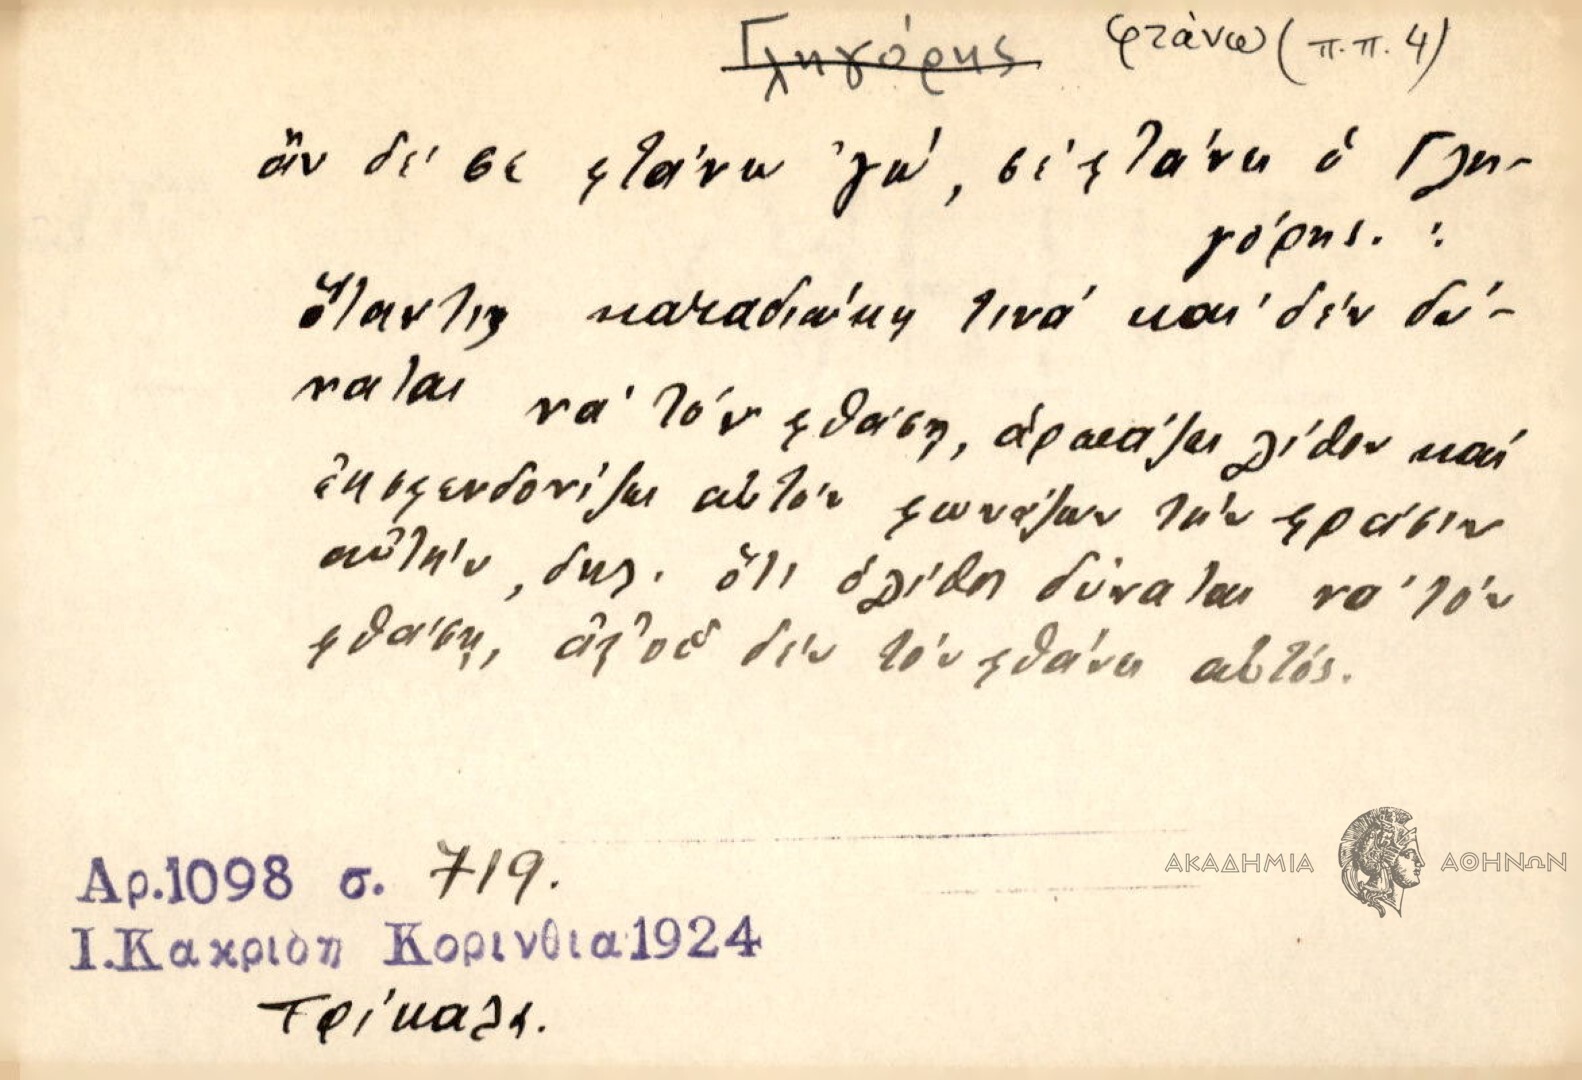 Γληγόρης φτάνω (π.π. 4)
ἄν δέ σε φτάνω 'γώ, σέ φτάνει ὁ Γλη-
γόρης. :
Ὅταν τις καταδιώκῃ τινά καί δέν δύ-
ναται νά τόν φθάσῃ, ἁρπάζει λίθον καί
ἐκσφενδονίζει αὐτόν φωνάζων τήν φράσιν
αὐτήν, δηλ. ὅτι ὁ λίθος δύναται νά τόν
φθάσῃ, ἀφ' οὗ δέν τόν φθάνει αὐτός.
Αρ.1098 σ. 719.
Ι.Κακριδη Κορινθια 1924
Τρίκαλα.
ΑΚΑΔΗΜΙΑ ΑΘΗΝΩΝ